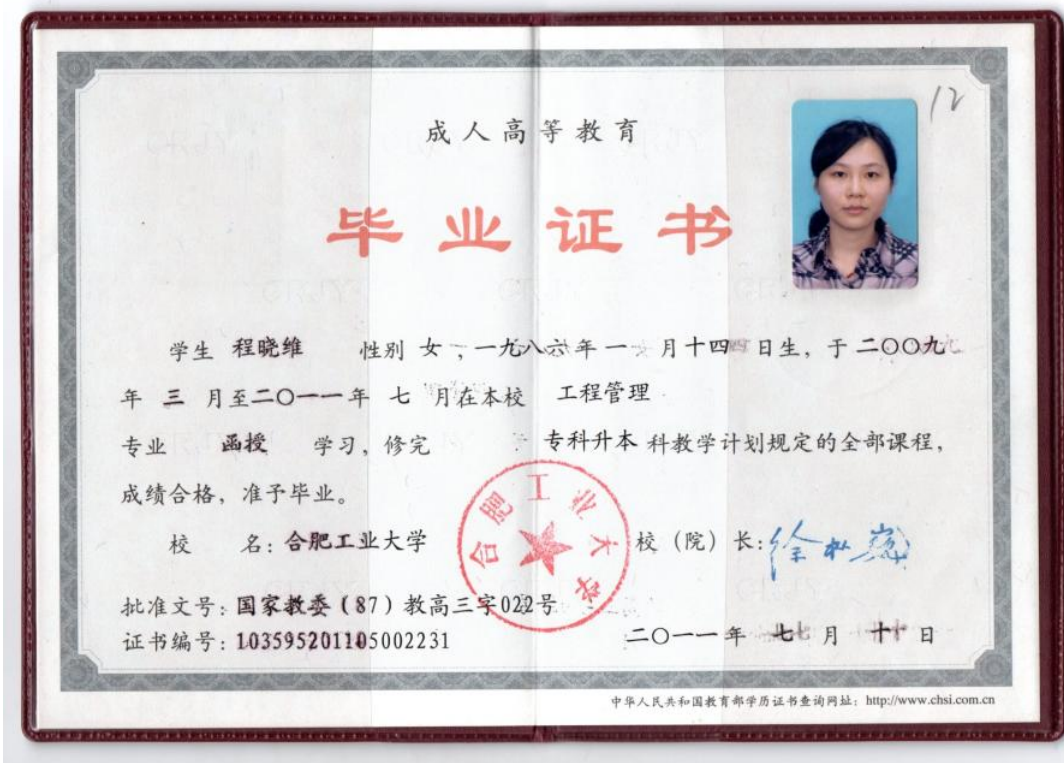 12
成人高等教育
毕业证书
学生 程晓维 性别 女，一九八六年 一 月十四日生，于 二〇〇九
年 三 月至二〇一一年 七 月在本校 工程管理
专业 函授 学习，修完 专科升本 科教学计划规定的全部课程，
成绩合格，准予毕业。
校 名：合肥工业大学 校（院）长：
合肥工业大学
批准文号：国家教委（87）教高三字022号
证书编号：103595201105002231 二〇一一年 七 月 十 日
中华人民共和国教育部学历证书查询网址：http://www.chsi.com.cn